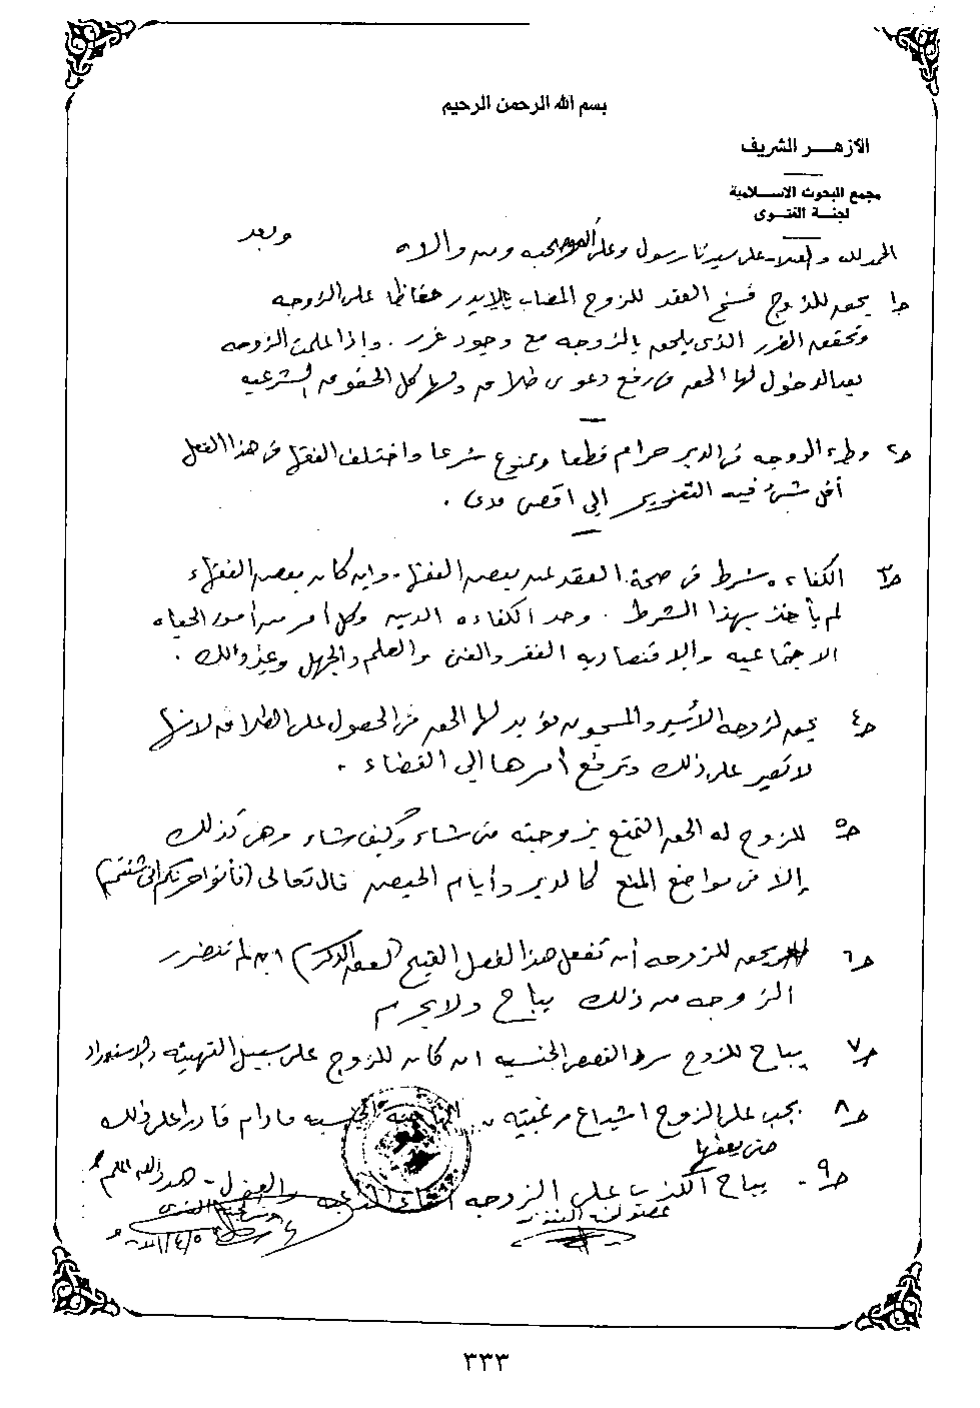 بسم الله الرحمن الرحيم
الأزهـــر الشريف
مجمع البحوث الاسـلامية
لجنـة الفتـوى
الحمد لله والصلاة على سيدنا رسول وعلى آله وصحبه ومن والاه وبعد
ج١ يحق للزوج فسخ العقد للزوج المصاب بالإيدز حفاظا على الزوجه
وتحقق الضرر الذى يلحق بالزوجه مع وجود غرر . وإذا علمت الزوجه
بعد الدخول لها الحق فى رفع دعوى طلاق ولها كل الحقوق الشرعيه
ج٢ وطء الزوجه فى الدبر حرام قطعا وممنوع شرعا واختلف الفقهاء فى هذا الفعل
أقل شىء فيه التعزير إلى اقصى مدى .
ج٣ الكفاءه شرط فى صحة العقد عند بعض الفقهاء - وان كان بعض الفقهاء
لم يأخذ بهذا الشرط . وحد الكفاءه الدين وكل أمر من أمور الحياه
الاجتماعيه والاقتصاديه الفقر والغنى والعلم والجهل وغير ذالك .
ج٤ يحق لزوجه الأسير والمسجون مؤبد لها الحق فى الحصول على الطلاق لانها
لا تصبر على ذلك وترفع أمرها إلى القضاء .
ج٥ للزوج له الحق التمتع بزوجته متى شاء وكيف شاء وهى كذلك
إلا فى مواضع المنع كالدبر وأيام الحيض قال تعالى (فأتوا حرثكم انى شئتم)
ج٦ يحق للزوجه أن تفعل هذا الفعل القبيح (لعق الذكر) ان لم تتضرر
الزوجه من ذلك يباح ولا يحرم
ج٧ يباح للزوج سرد القصص الجنسيه ان كان للزوج على سبيل التهيئه والاستعداد
ج٨ يجب على الزوج اشباع رغبته من الناحيه الجنسيه مادام قادرا على ذلك
حتى يعفها
ج٩ - يباح الكذب على الزوجه اثناء المداعبه والغزل - هذا والله اعلم
عضو لجنة الفتوى